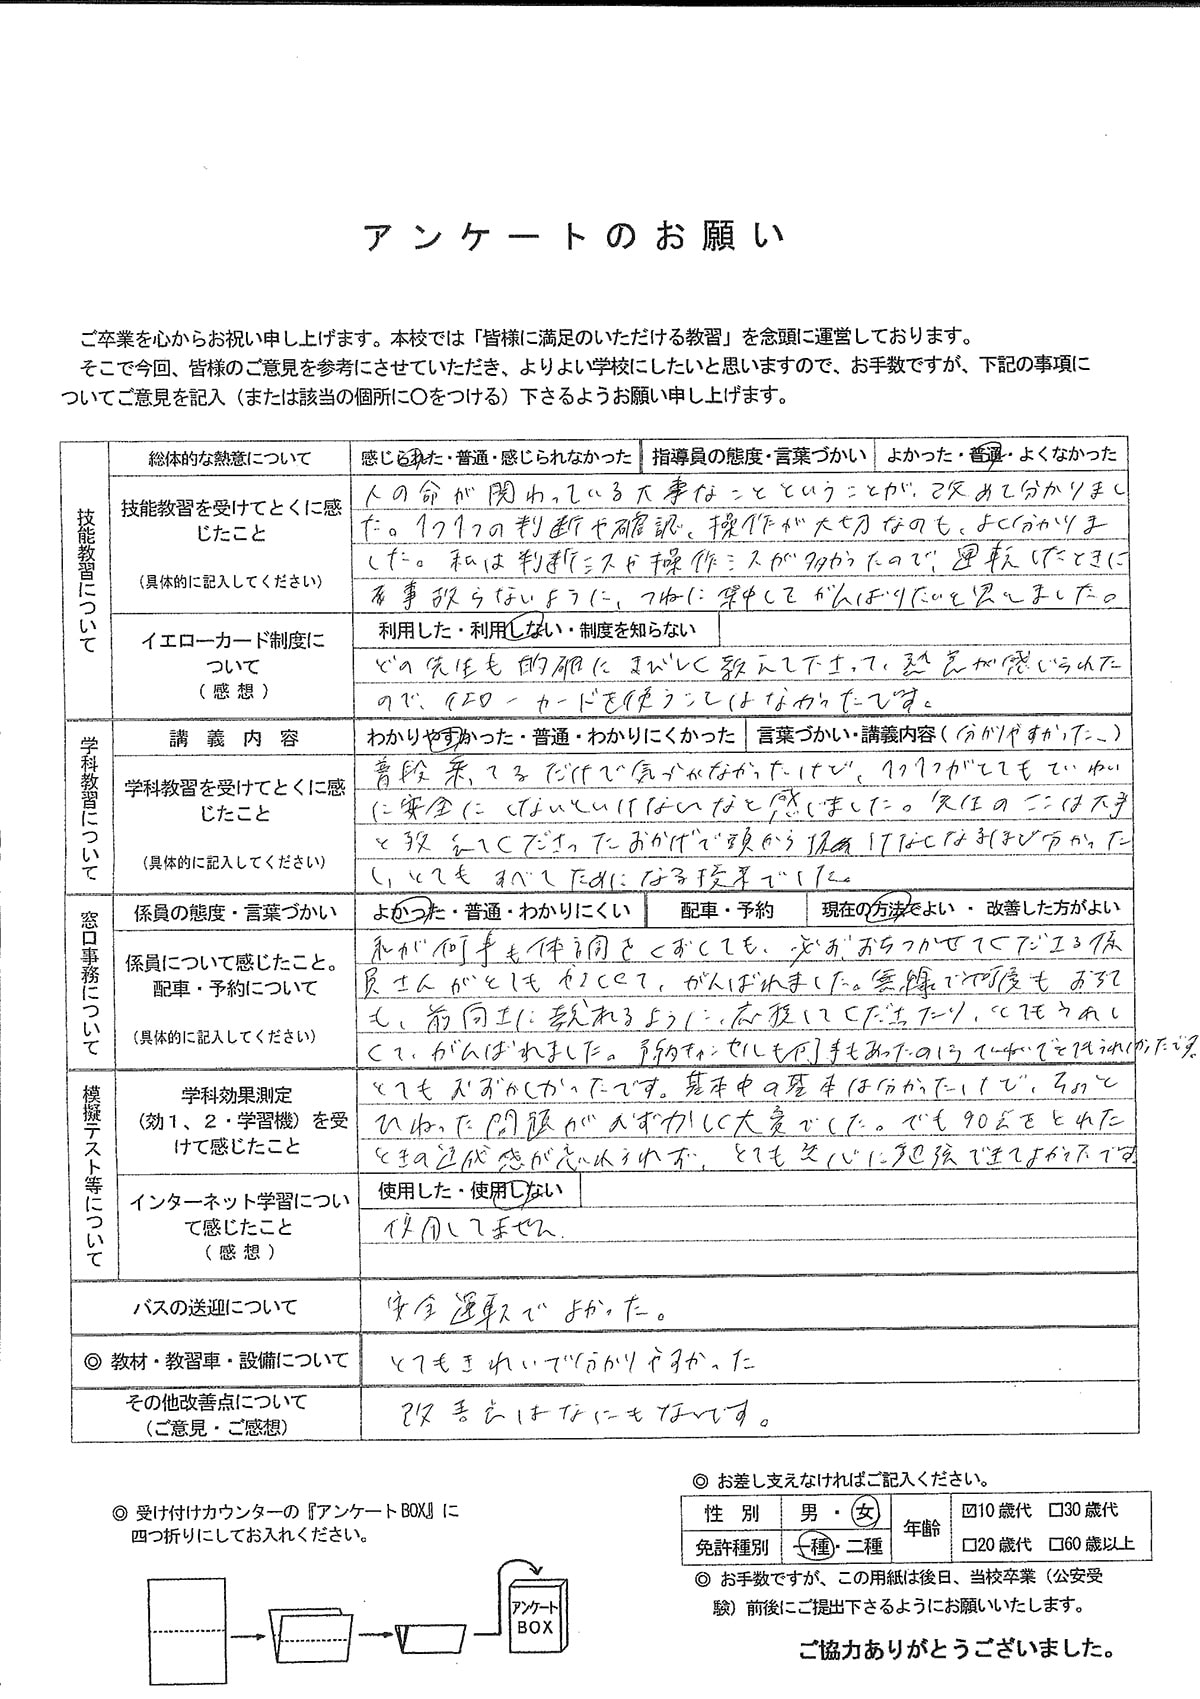 アンケートのお願い
ご卒業を心からお祝い申し上げます。本校では「皆様に満足のいただける教習」を念頭に運営しております。
そこで今回、皆様のご意見を参考にさせていただき、よりよい学校にしたいと思いますので、お手数ですが、下記の事項に
ついてご意見を記入（または該当の個所に〇をつける）下さるようお願い申し上げます。
技能教習について
総体的な熱意について 感じられた・普通・感じられなかった 指導員の態度・言葉づかい よかった・普通・よくなかった
技能教習を受けてとくに感
じたこと
（具体的に記入してください）
人の命が関わっている大事なことということが、改めて分かりまし
た。1つ1つの判断や確認、操作が大切なのも、よく分かりま
した。私は判断ミスや操作ミスが多かったので、運転したときに
事故らないように、つねに集中してがんばりたいと思いました。
イエローカード制度に
ついて
（感想）
利用した・利用しない・制度を知らない
どの先生も的確にきびしく教えて下さって、熱意が感じられた
ので、イエローカードを使うことはなかったです。
学科教習について
講義内容 わかりやすかった・普通・わかりにくかった 言葉づかい・講義内容（分かりやすかった）
学科教習を受けてとくに感
じたこと
（具体的に記入してください）
普段乗ってるだけで気づかなかったけど、1つ1つがとてもていねい
に安全にしないといけないなと感じました。先生のここは大事
と教えてくださったおかげで頭から抜けなくなるほど分かった
し、とてもすべてためになる授業でした。
窓口事務について
係員の態度・言葉づかい よかった・普通・わかりにくい 配車・予約 現在の方法でよい・改善した方がよい
係員について感じたこと。
配車・予約について
（具体的に記入してください）
私が何事も体調をくずしても、必ずおちつかせてくださる係
員さんがとてもやさしくて、がんばれました。無線で何度もおちて
も、前向きに乗れるように、応援してくださったり、とてもうれし
くて、がんばれました。予約キャンセルも何事もあったのにていねいでとてもうれしかったです。
模擬テスト等について
学科効果測定
（効1、2・学習機）を受
けて感じたこと
とてもむずかしかったです。基本中の基本は分かったけど、
ひねった問題がむずかしく大変でした。でも90点をとれた
ときの達成感が忘れられず、とても熱心に勉強できてよかったです
インターネット学習につい
て感じたこと
（感想）
使用した・使用しない
使用してません
バスの送迎について
安全運転でよかった。
◎ 教材・教習車・設備について
とてもきれいで分かりやすかった
その他改善点について
（ご意見・ご感想）
改善点はなにもないです。
◎ 受け付けカウンターの『アンケートBOX』に
四つ折りにしてお入れください。
アンケート
BOX
◎ お差し支えなければご記入ください。
性別 男・女 年齢 ☑10歳代 □30歳代
免許種別 一種・二種 □20歳代 □60歳以上
◎ お手数ですが、この用紙は後日、当校卒業（公安受
験）前後にご提出下さるようにお願いいたします。
ご協力ありがとうございました。